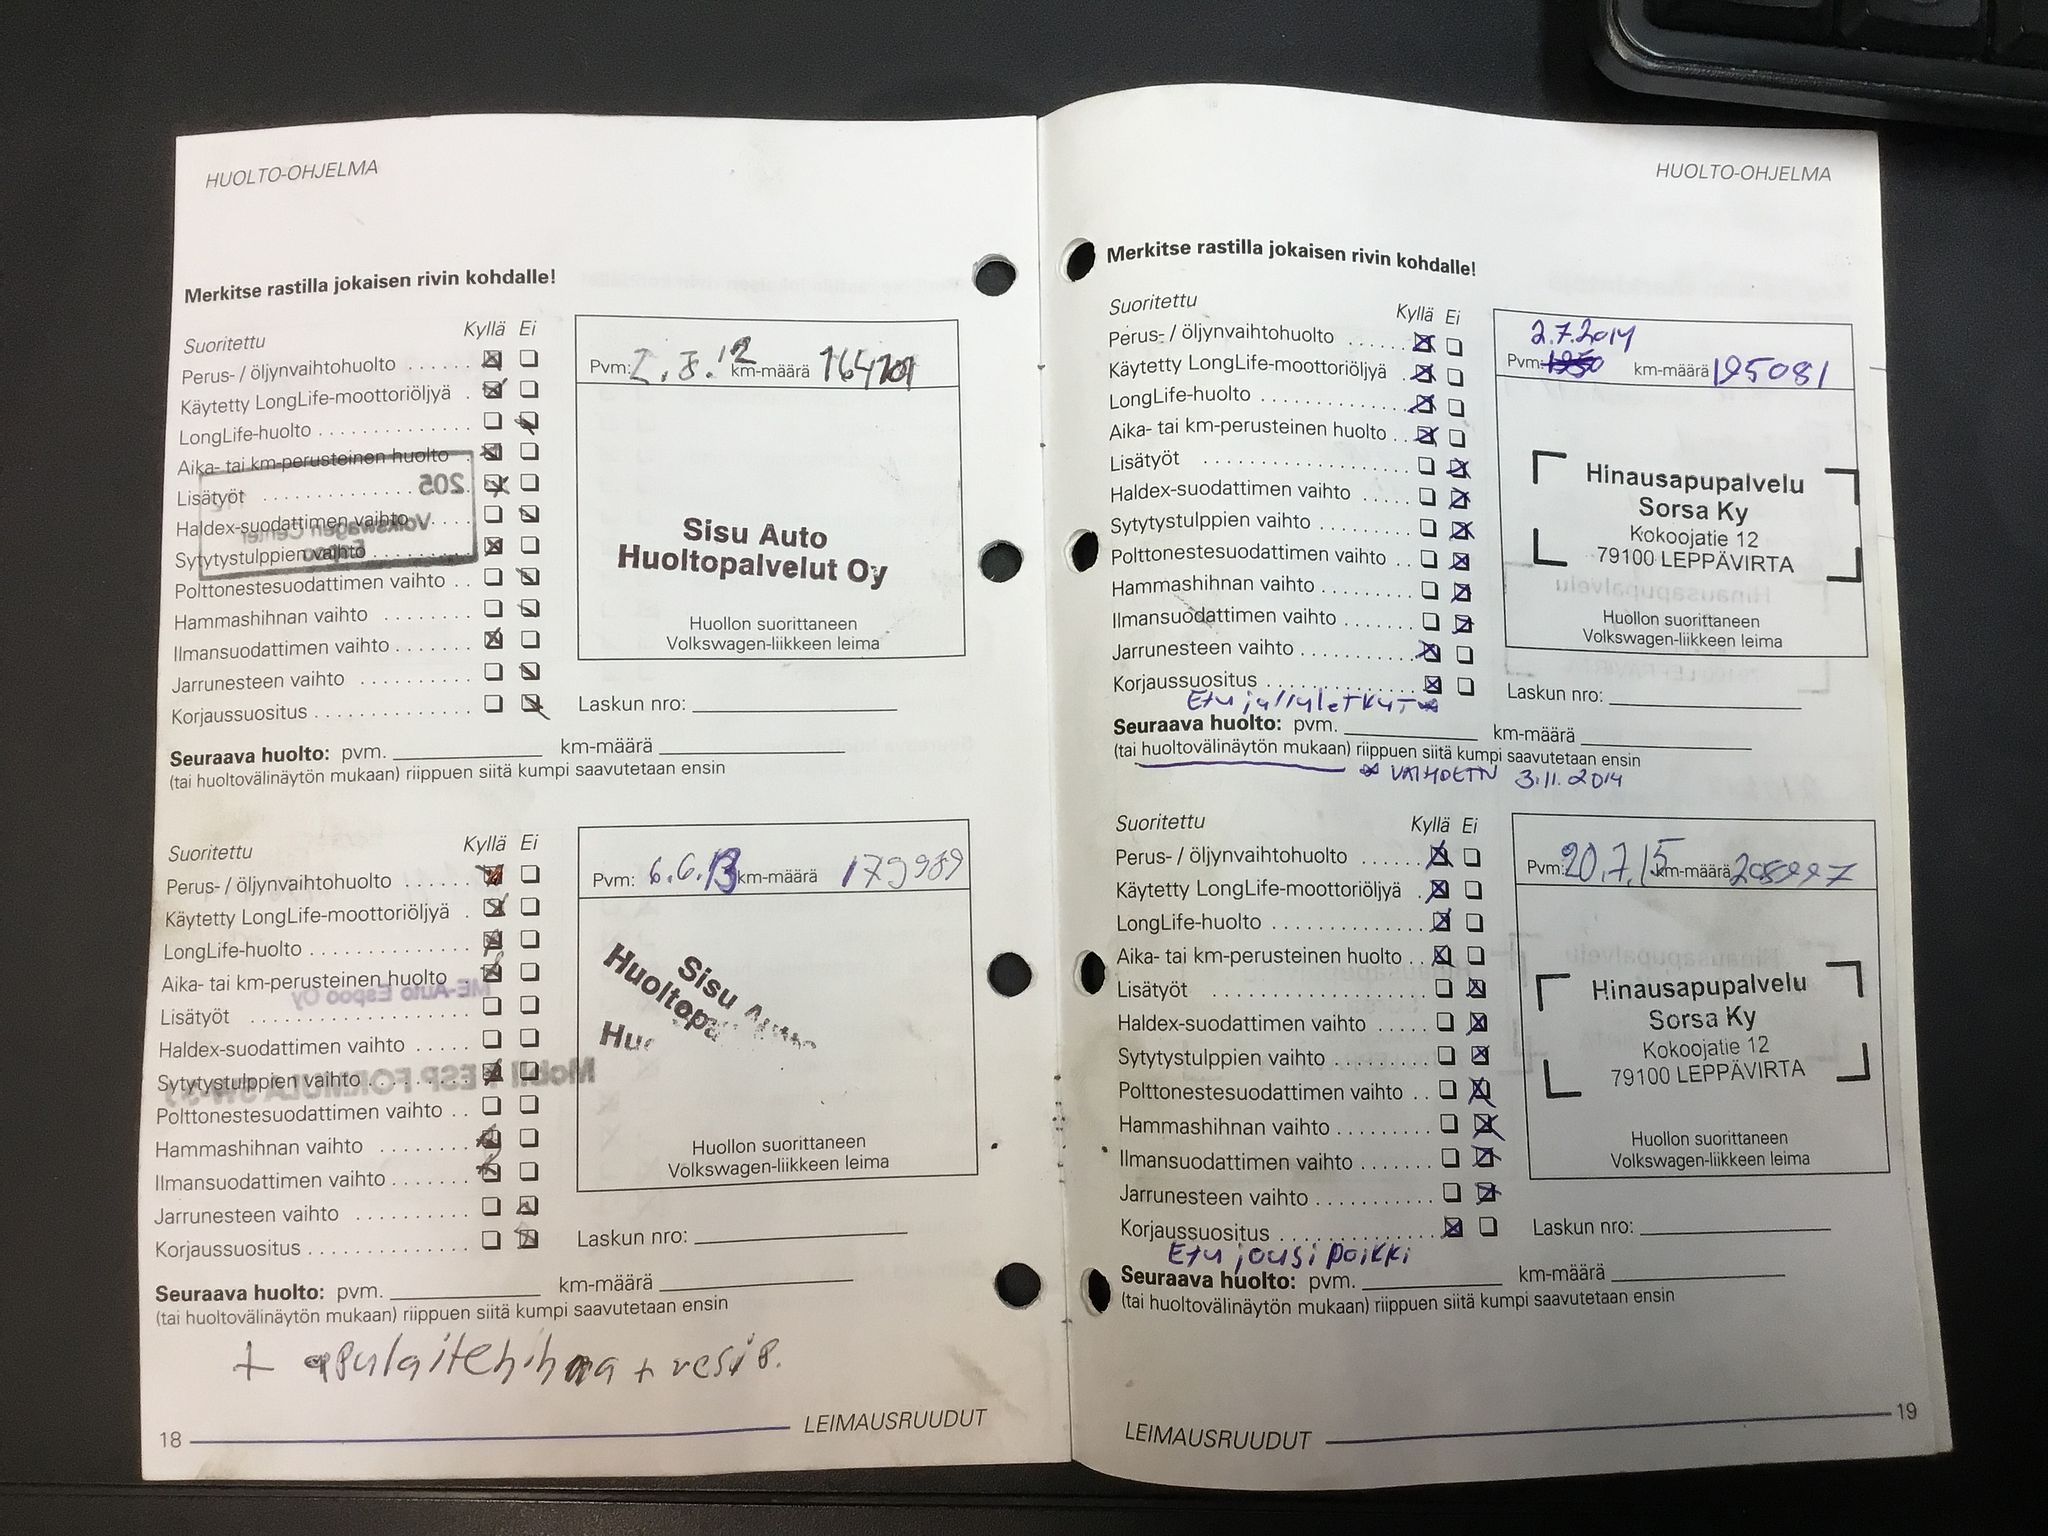 HUOLTO-OHJELMA
Merkitse rastilla jokaisen rivin kohdalle!
Suoritettu Kyllä Ei
Perus- / öljynvaihtohuolto
Käytetty LongLife-moottoriöljyä
LongLife-huolto
Aika- tai km-perusteinen huolto
Lisätyöt
Haldex-suodattimen vaihto
Sytytystulppien vaihto
Polttonestesuodattimen vaihto
Hammashihnan vaihto
Ilmansuodattimen vaihto
Jarrunesteen vaihto
Korjaussuositus
Pvm: km-määrä
Sisu Auto
Huoltopalvelut Oy
Huollon suorittaneen
Volkswagen-liikkeen leima
Laskun nro:
Seuraava huolto: pvm. km-määrä
(tai huoltovälinäytön mukaan) riippuen siitä kumpi saavutetaan ensin
205
Volkswagen Center
Espoo
Suoritettu Kyllä Ei
Perus- / öljynvaihtohuolto
Käytetty LongLife-moottoriöljyä
LongLife-huolto
Aika- tai km-perusteinen huolto
Lisätyöt
Haldex-suodattimen vaihto
Sytytystulppien vaihto
Polttonestesuodattimen vaihto
Hammashihnan vaihto
Ilmansuodattimen vaihto
Jarrunesteen vaihto
Korjaussuositus
Pvm: 6.6.13 km-määrä 179989
Sisu Auto
Huoltopa
Huo
Huollon suorittaneen
Volkswagen-liikkeen leima
Laskun nro:
Seuraava huolto: pvm. km-määrä
(tai huoltovälinäytön mukaan) riippuen siitä kumpi saavutetaan ensin
ME-Auto Espoo Oy
Mobil 1 ESP FORMULA 5W-30
+ apulaitehihna + vesip.
18 LEIMAUSRUUDUT
HUOLTO-OHJELMA
Merkitse rastilla jokaisen rivin kohdalle!
Suoritettu Kyllä Ei
Perus- / öljynvaihtohuolto
Käytetty LongLife-moottoriöljyä
LongLife-huolto
Aika- tai km-perusteinen huolto
Lisätyöt
Haldex-suodattimen vaihto
Sytytystulppien vaihto
Polttonestesuodattimen vaihto
Hammashihnan vaihto
Ilmansuodattimen vaihto
Jarrunesteen vaihto
Korjaussuositus
Etu jarruletkut
2.7.2014
Pvm: km-määrä 195081
Hinausapupalvelu
Sorsa Ky
Kokoojatie 12
79100 LEPPÄVIRTA
Huollon suorittaneen
Volkswagen-liikkeen leima
Laskun nro:
Seuraava huolto: pvm. km-määrä
(tai huoltovälinäytön mukaan) riippuen siitä kumpi saavutetaan ensin
VAIHDETTU 3.11.2014
Suoritettu Kyllä Ei
Perus- / öljynvaihtohuolto
Käytetty LongLife-moottoriöljyä
LongLife-huolto
Aika- tai km-perusteinen huolto
Lisätyöt
Haldex-suodattimen vaihto
Sytytystulppien vaihto
Polttonestesuodattimen vaihto
Hammashihnan vaihto
Ilmansuodattimen vaihto
Jarrunesteen vaihto
Korjaussuositus
Etu jousi poikki
Pvm: 20.7.15 km-määrä
Hinausapupalvelu
Sorsa Ky
Kokoojatie 12
79100 LEPPÄVIRTA
Huollon suorittaneen
Volkswagen-liikkeen leima
Laskun nro:
Seuraava huolto: pvm. km-määrä
(tai huoltovälinäytön mukaan) riippuen siitä kumpi saavutetaan ensin
LEIMAUSRUUDUT 19